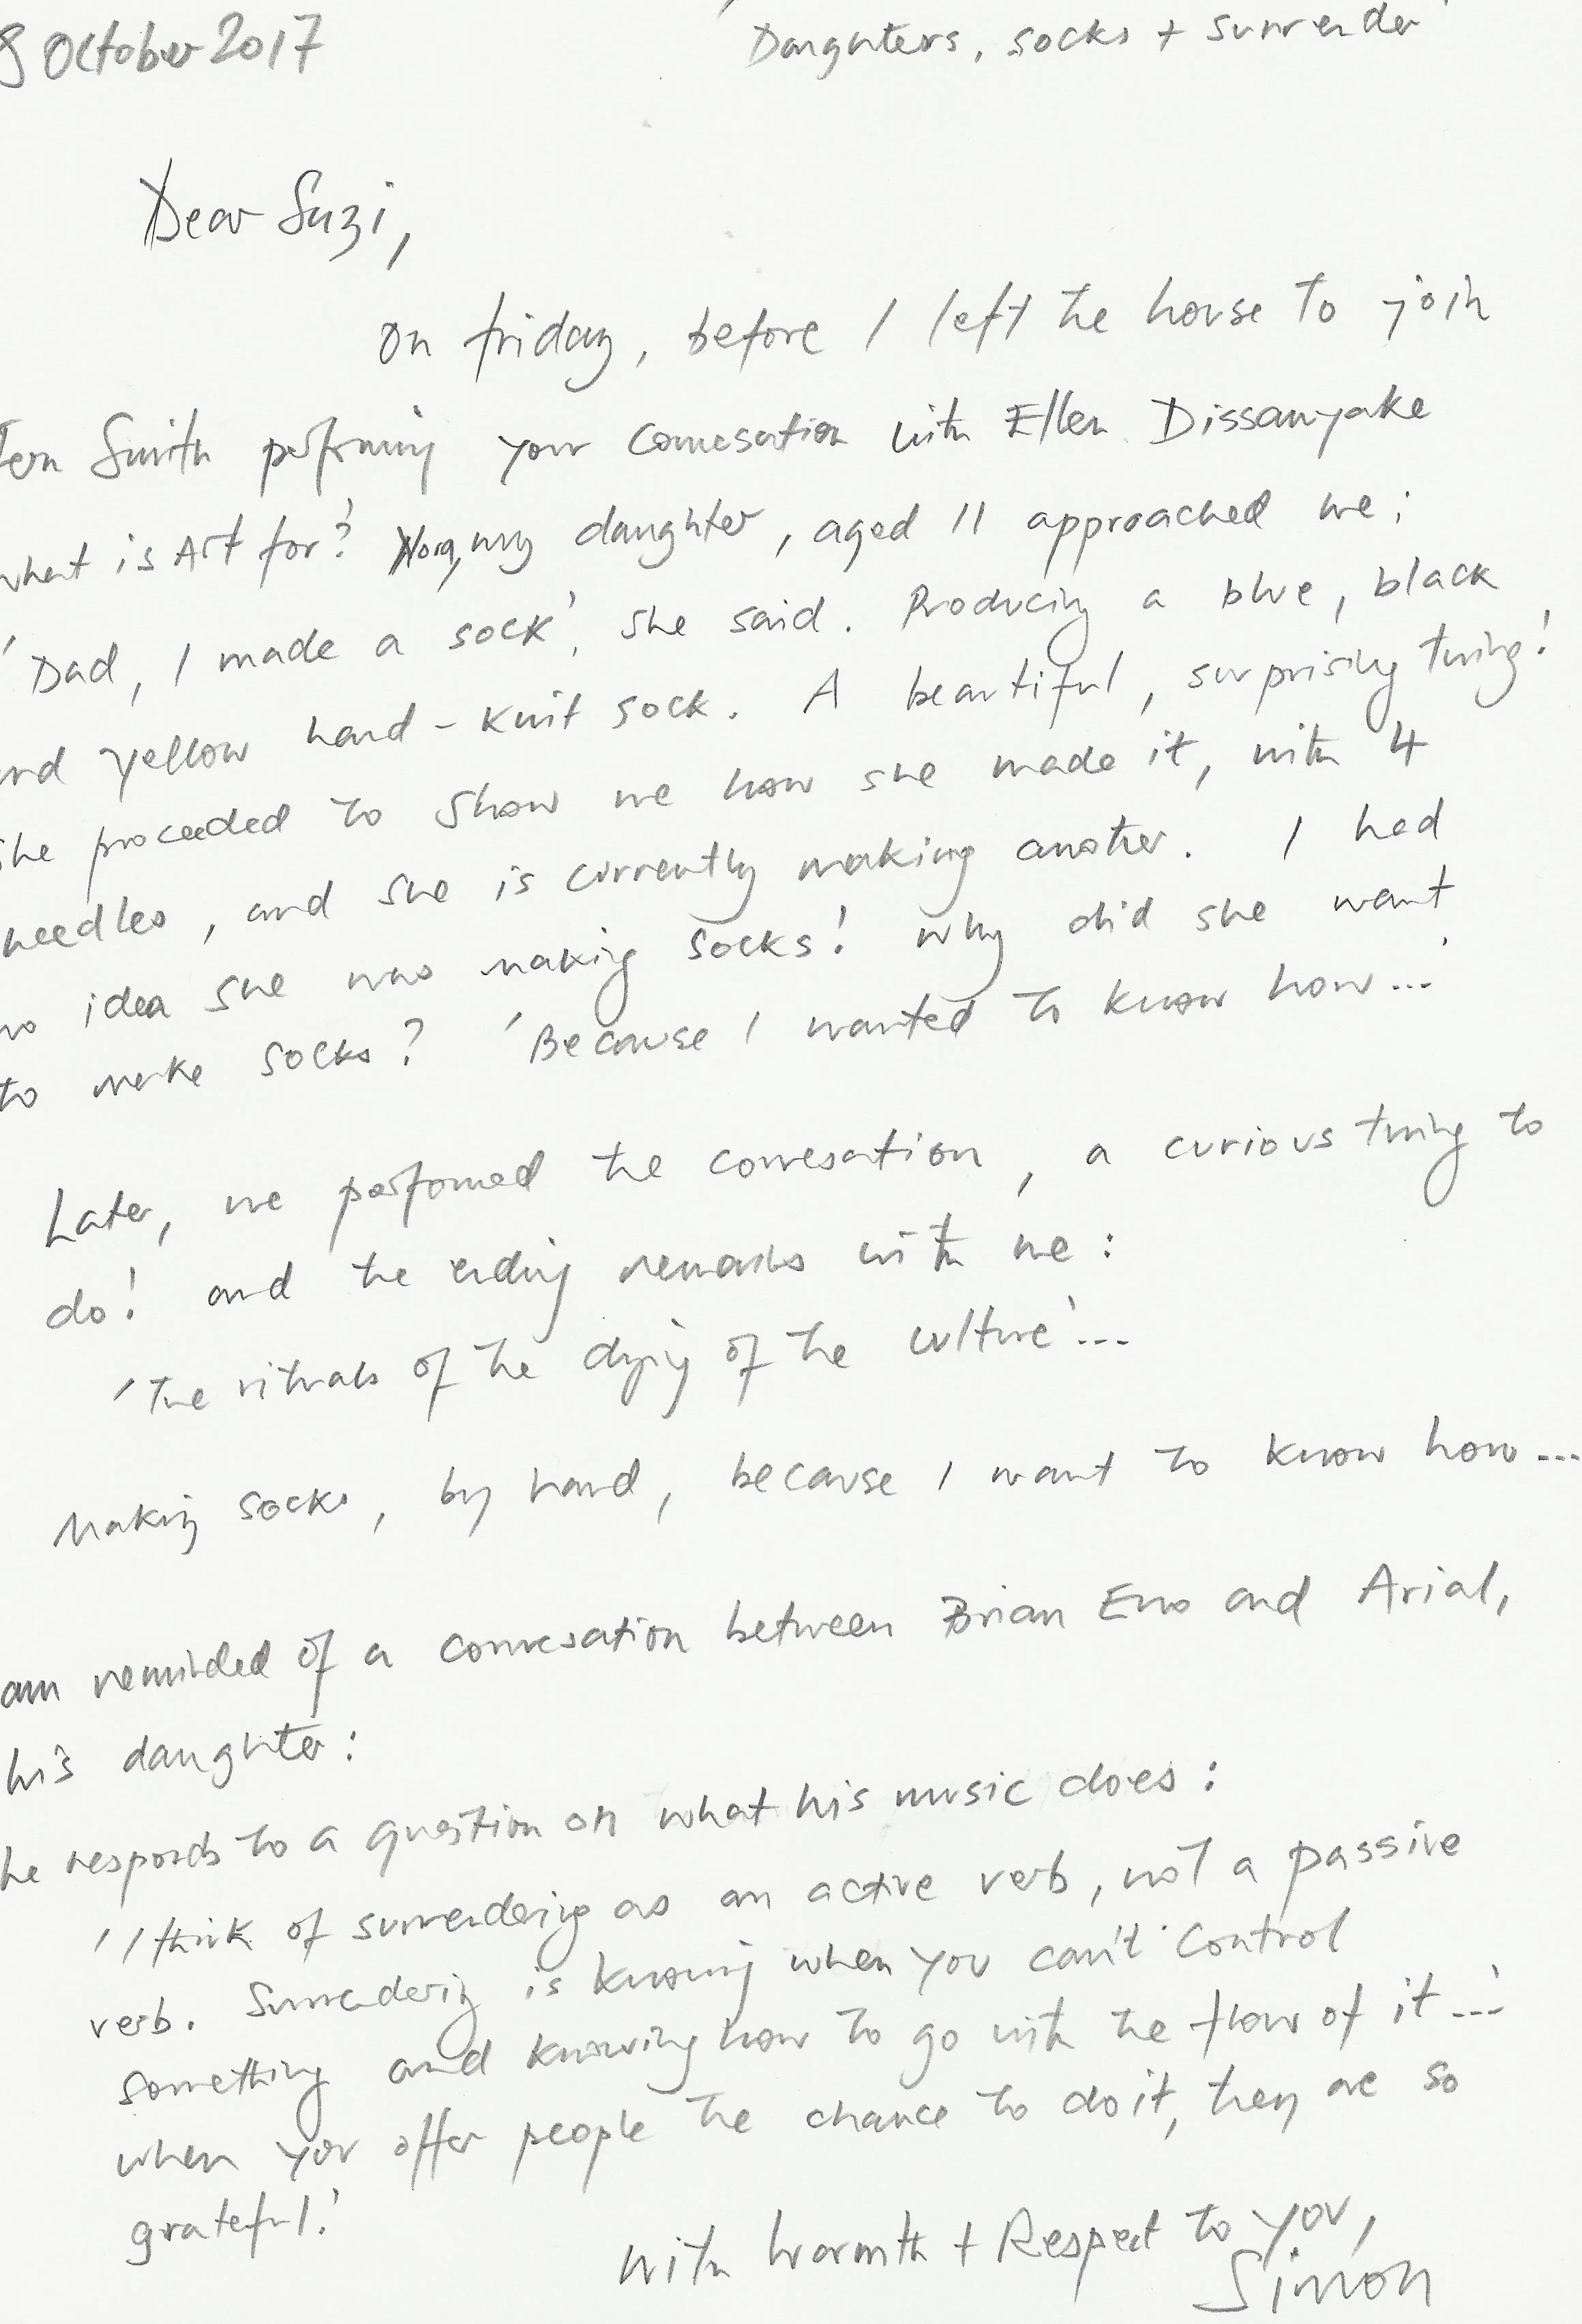 8 October 2017
'Daughters, socks + surrender'
Dear Suzi,
on friday, before I left the house to join
Fern Smith performing your conversation with Ellen Dissanyake
what is Art for?' Nora, my daughter, aged 11 approached me;
'Dad, I made a sock', she said. Producing a blue, black
and yellow hand-knit sock. A beautiful, surprising thing!
she proceeded to show me how she made it, with 4
needles, and she is currently making another. I had
no idea she was making socks! why did she want
to make socks? 'Because I wanted to know how...'
Later, we performed the conversation, a curious thing to
do! and the ending remains with me:
'The rituals of the dying of the culture'...
Making socks, by hand, because I want to know how...
am reminded of a conversation between Brian Eno and Arial,
his daughter:
he responds to a question on what his music does:
'I think of surrendering as an active verb, not a passive
verb. Surrendering is knowing when you can't control
something and knowing how to go with the flow of it...'
when you offer people the chance to do it, they are so
grateful.'
with warmth + Respect to you,
Simon